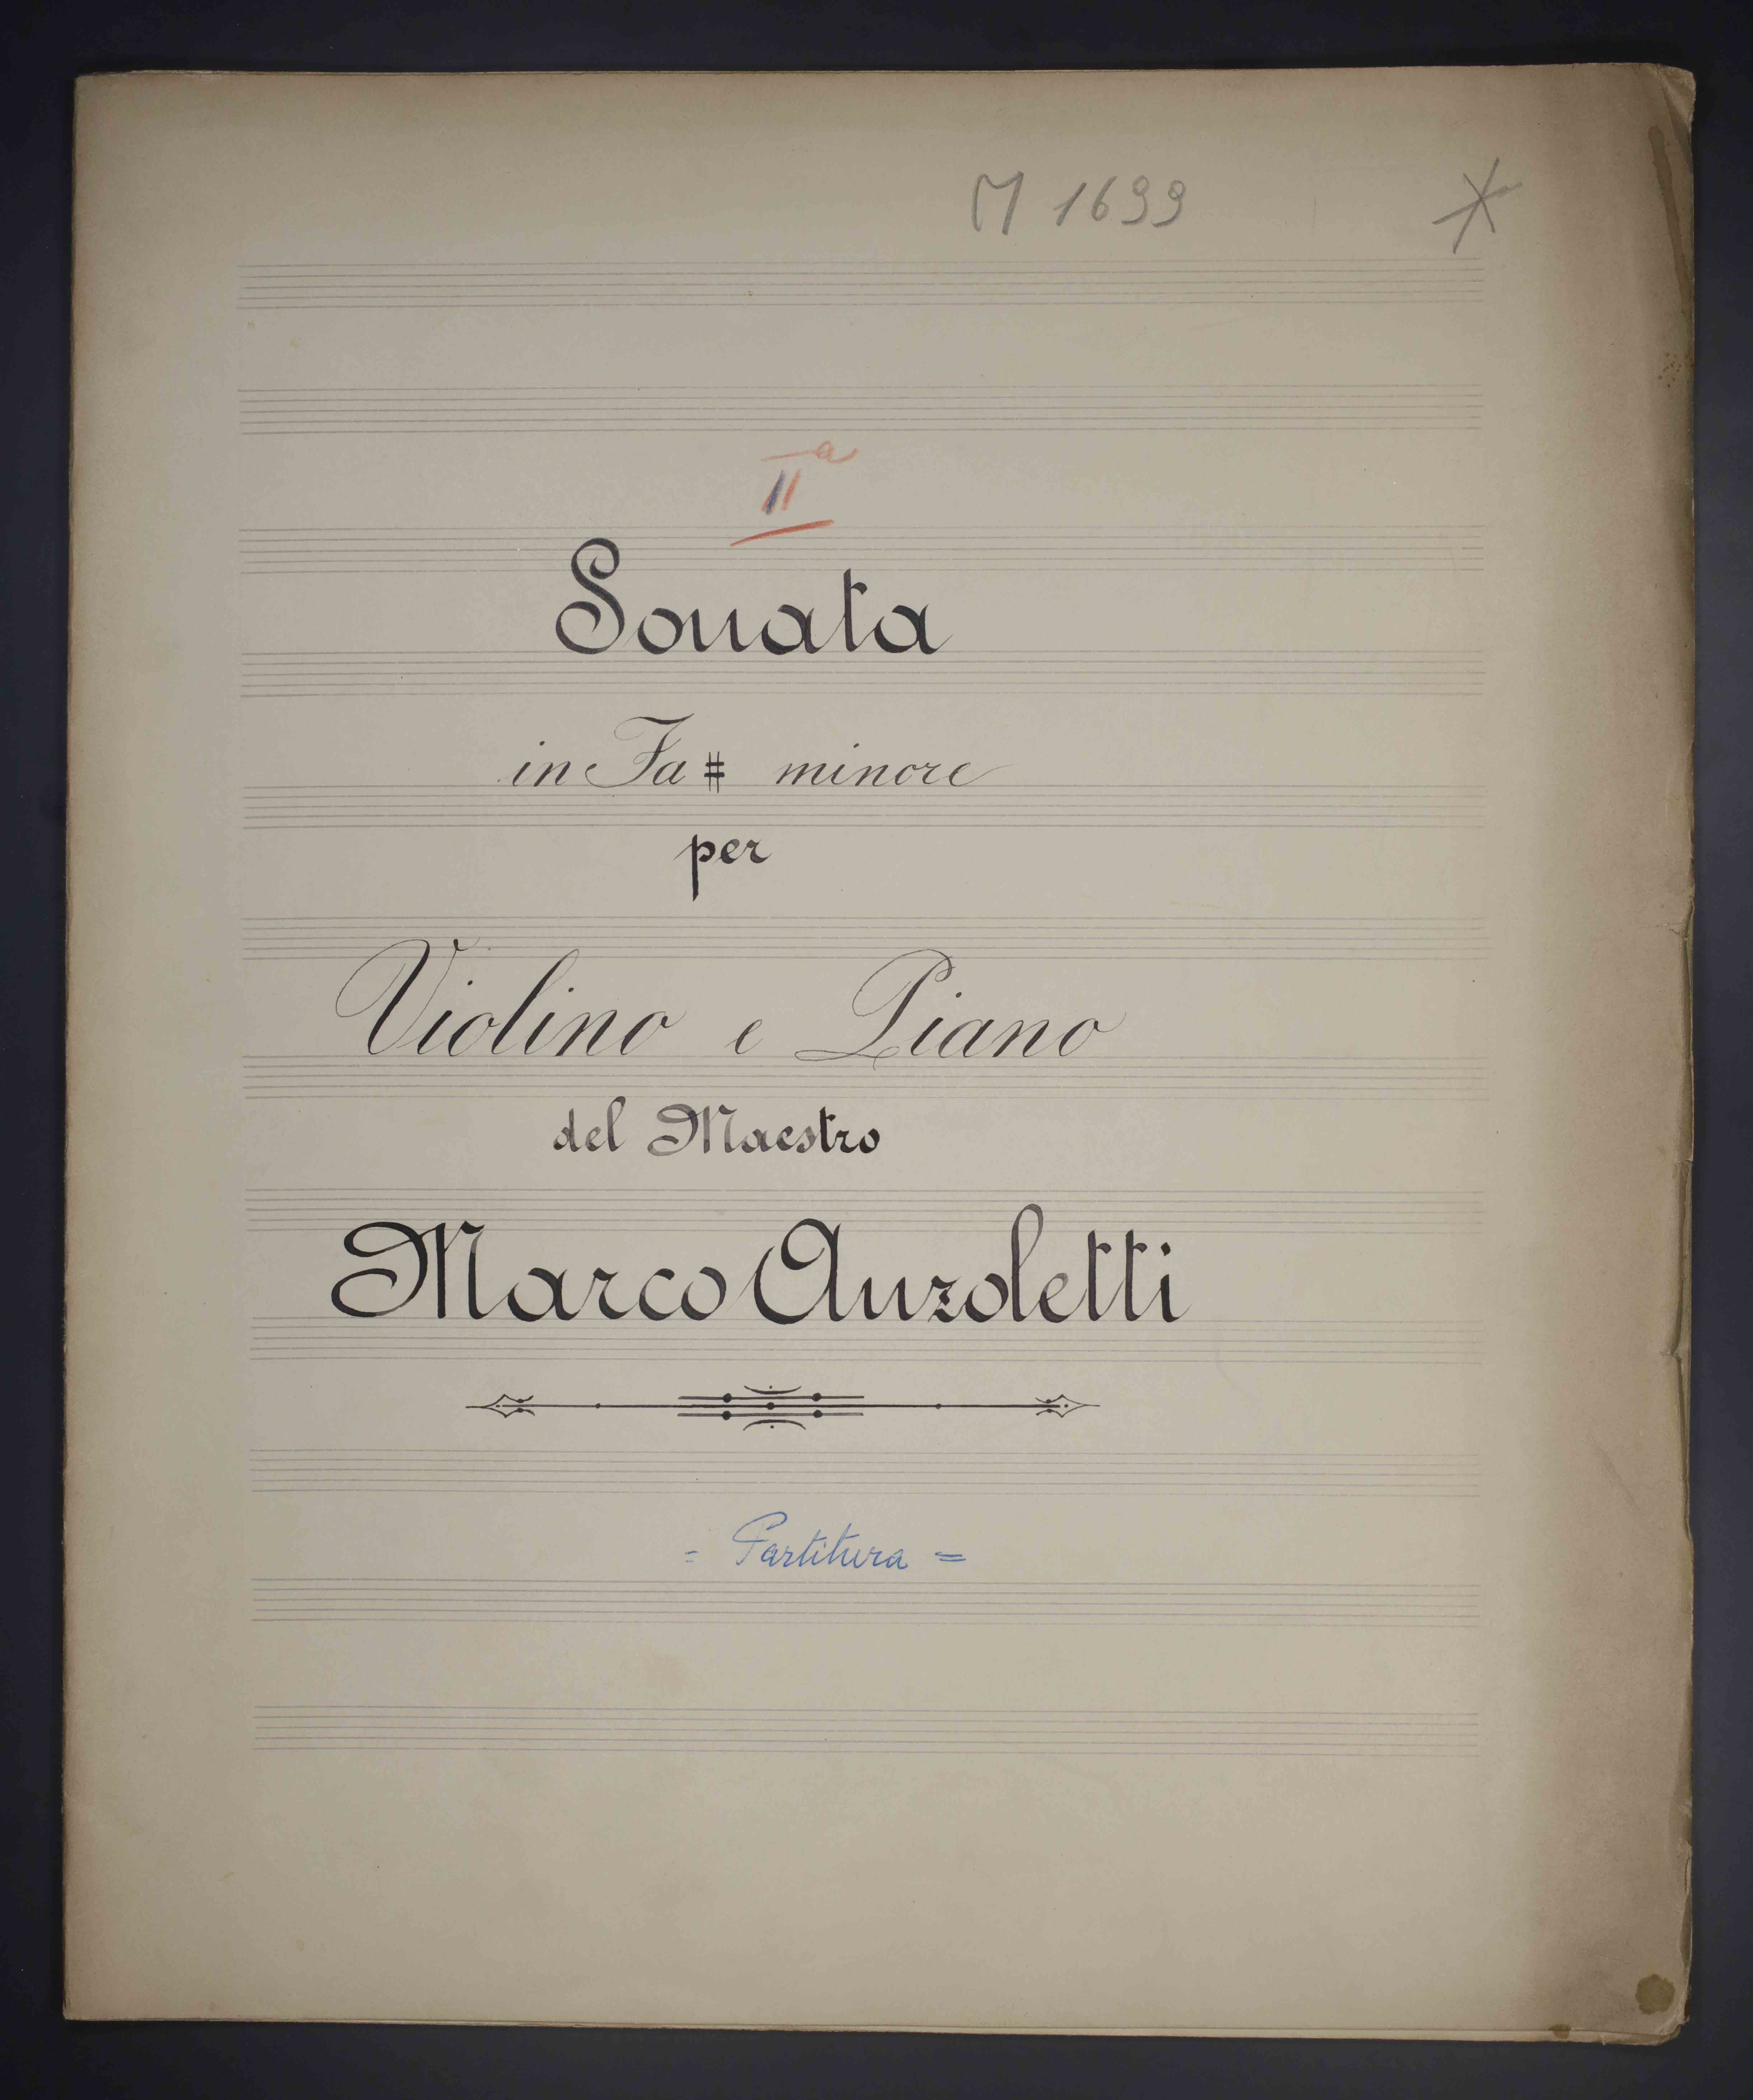 M 1699 *
IIª
Sonata
in Fa # minore
per
Violino e Piano
del Maestro
Marco Anzoletti
= Partitura =